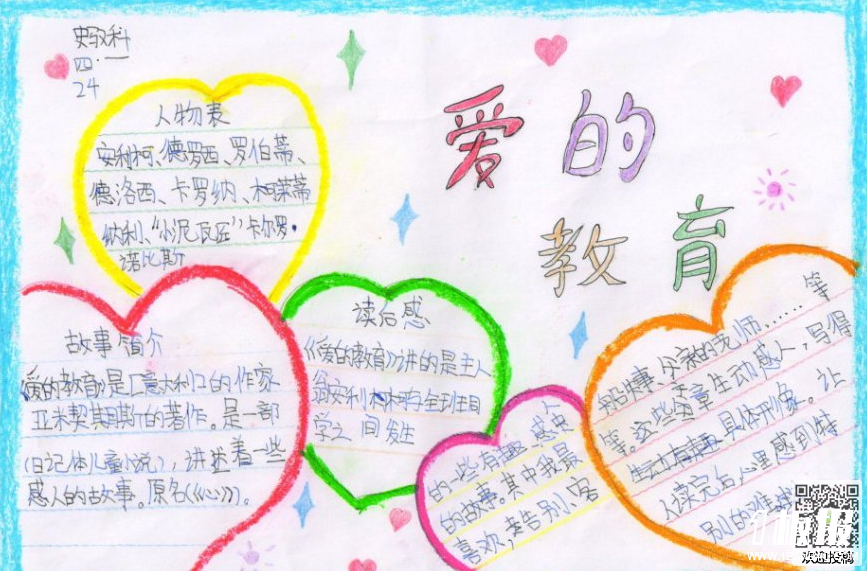 四.一
24
爱的
教育
人物表
安利柯、德罗西、罗伯蒂、
德洛西、卡罗纳、
纳利、“小泥瓦匠”卡尔罗·
诺比斯
故事简介
《爱的教育》是【意大利】的作家
亚米契斯的著作。是一部
(日记体儿童小说)，讲述着一些
感人的故事。原名(《心》)。
读后感
《爱的教育》讲的是主人
翁安利柯
学之间发生
的一些有趣、感
的故事。其中我最
喜欢，
告别
父亲的老师……等
等。这些文章生动感人，写得
生动有趣，具体形象。让
人读完后心里感到特
别的难